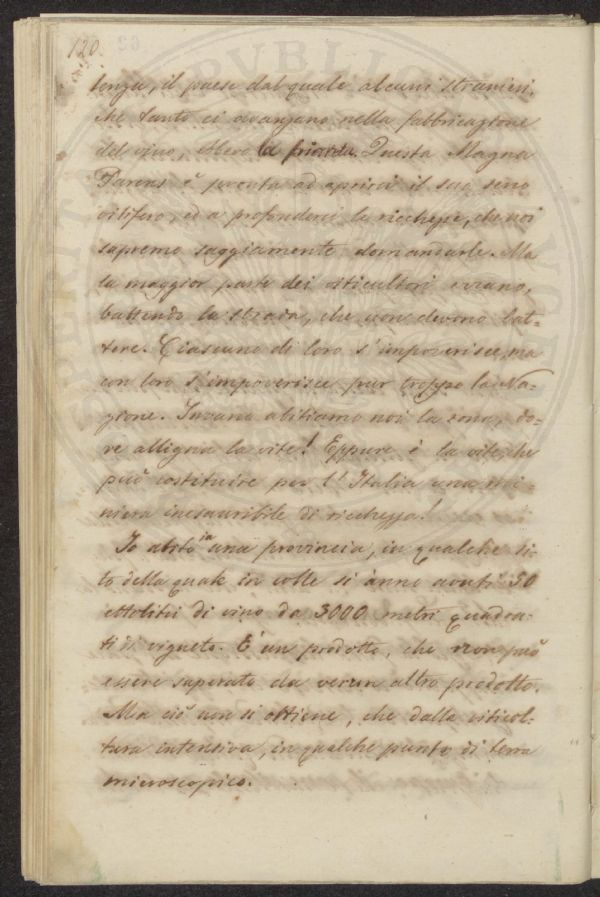 120.
tenza, il paese dal quale alcuni stranieri,
che tanto ci avanzano nella fabbricazione
del vino, ebbero la priorità. Questa Magna
Parens è pronta ad aprirci il suo seno
vitifero, ed a profonderci le ricchezze, che noi
sapremo saggiamente domandarle. Ma
la maggior parte dei viticultori errano,
battendo la strada, che non devono bat-
tere. Ciascuno di loro s'impoverisce, ma
con loro s'impoverisce pur troppo la Na-
zione. Invano abitiamo noi la zona, do-
ve alligna la vite! Eppure è la vite, che
può costituire per l'Italia una mi-
niera inesauribile di ricchezza!
Io abito in una provincia, in qualche si-
to della quale in colle si ànno avuti 50
ettolitri di vino da 3000 metri quadra-
ti di vigneto. È un prodotto, che non può
essere superato da verun altro prodotto.
Ma ciò non si ottiene, che dalla viticol-
tura intensiva, in qualche punto di terra
microscopico.